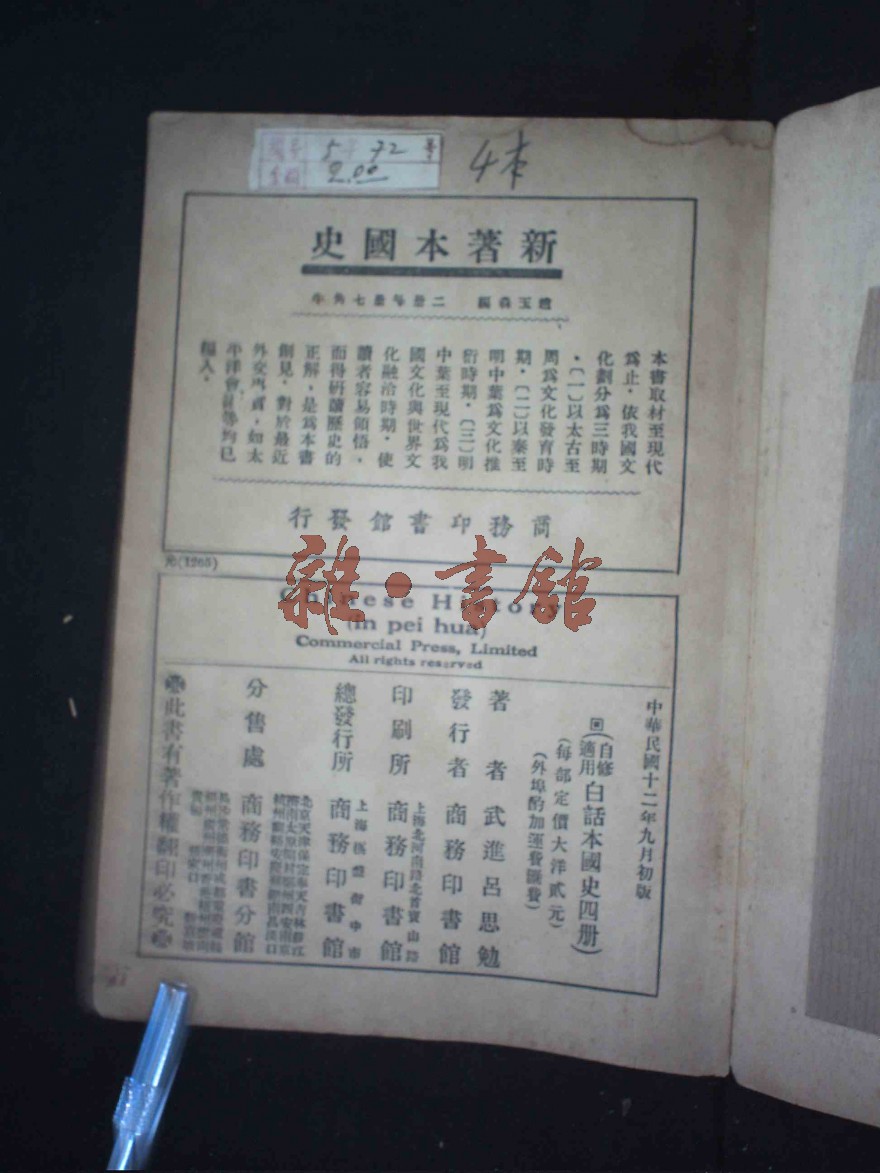 5 72
2.00
4本
新著本國史
趙玉森編 二册每册七角半
本書取材至現代
爲止·依我國文
化劃分爲三時期
·〔一〕以太古至
周爲文化發育時
期·〔二〕以秦至
明中葉爲文化推
衍時期·〔三〕明
中葉至現代爲我
國文化與世界文
化融洽時期·使
讀者容易領悟·
而得研讀歷史的
正解·是爲本書
創見·對於最近
外交內政·如太
平洋會議等均已
編入·
商務印書館發行
元(1265)
雜·書館
Chinese History
(In pei hua)
Commercial Press, Limited
All rights reserved
中華民國十二年九月初版
(自修適用白話本國史四册)
(每部定價大洋貳元)
(外埠酌加運費匯費)
著者 武進呂思勉
發行者 商務印書館
印刷所 上海北河南路北首寶山路 商務印書館
總發行所 上海棋盤街中市 商務印書館
分售處 商務印書分館
此書有著作權翻印必究